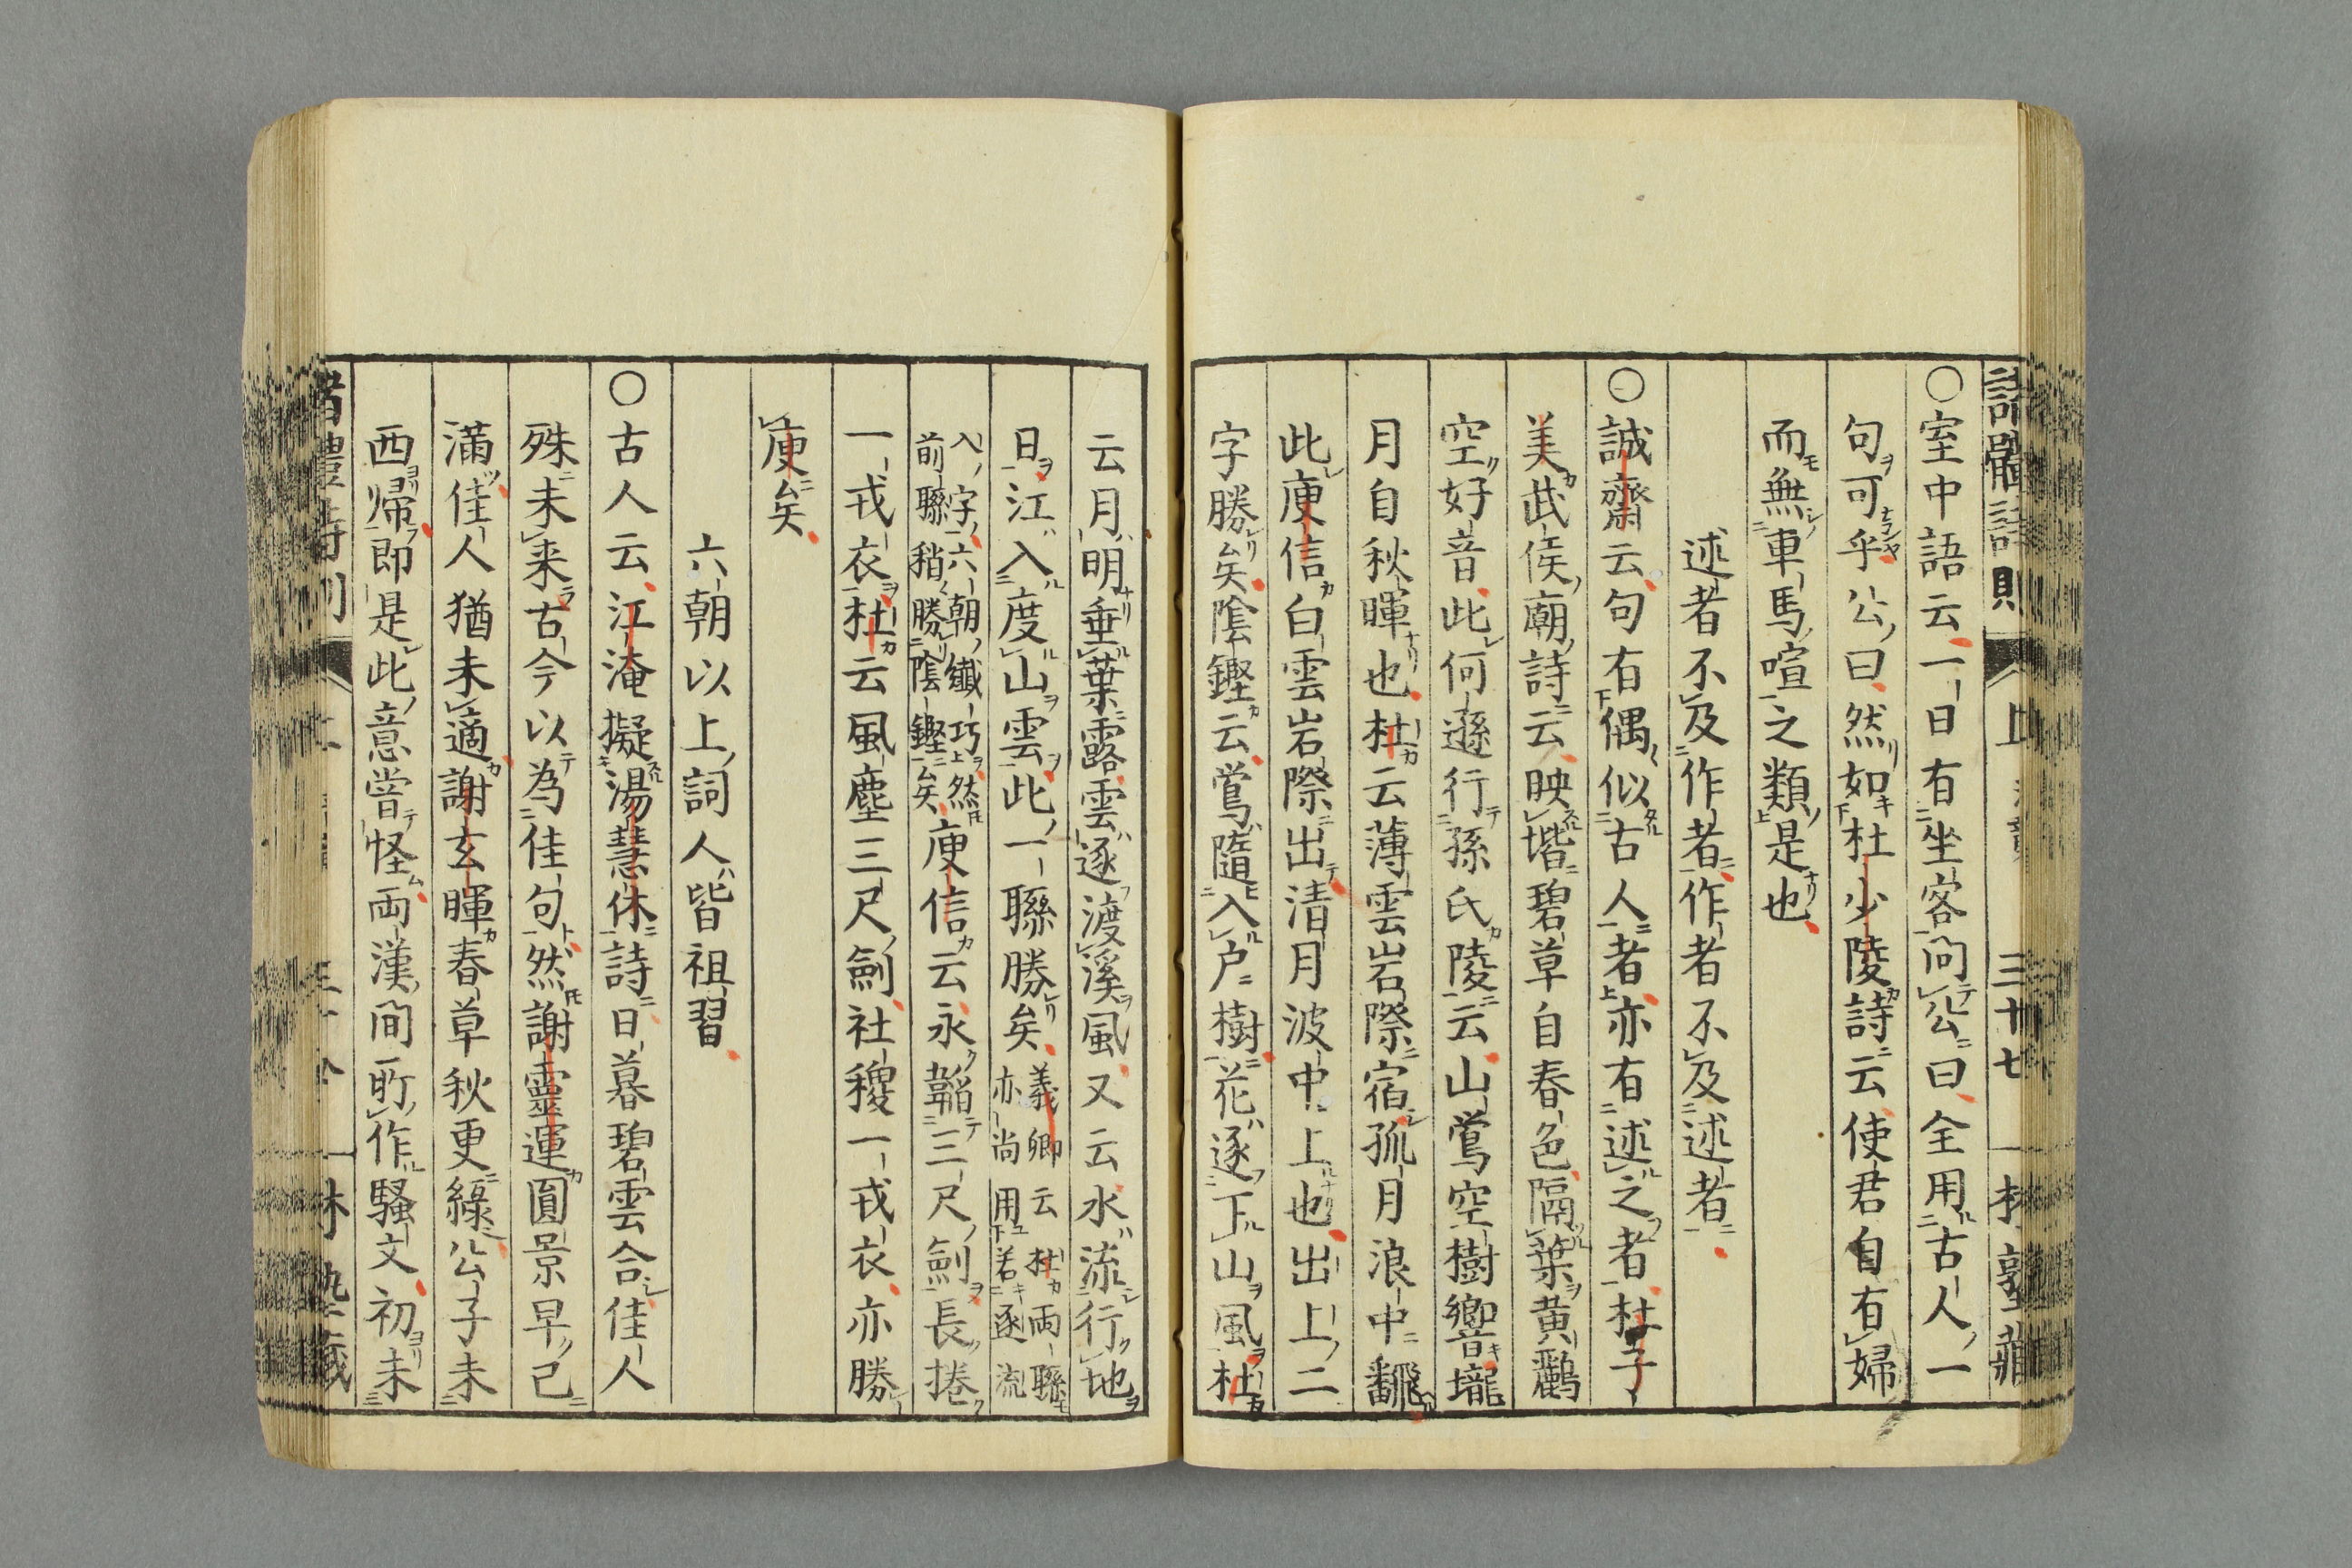 ○室中語云一日有坐客問公曰全用古人一
句可乎公曰然如杜少陵詩云使君自有婦
而無車馬喧之類是也
述者不及作者作者不及述者
○誠齋云句有偶似古人者亦有述之者杜子
美武侯廟詩云映堦碧草自春色隔葉黄鸝
空好音此何遜行孫氏陵云山鶯空樹響壠
月自秋暉也杜云薄雲岩際宿孤月浪中飜
此庾信白雲岩際出清月波中上也出上二
字勝矣陰鏗云鶯隨入户樹花逐下山風杜
云月明垂葉露雲逐渡溪風又云水流行地
日江入度山雲此一聯勝矣義卿云杜両聯
亦尚用若逐流
入字六朝纎巧然
前聯稍勝陰鏗矣庾信云永韜三尺劍長捲
一戎衣杜云風塵三尺劍社稷一戎衣亦勝
庾矣
六朝以上詞人皆祖習
○古人云江淹擬湯惠休詩曰暮碧雲合佳人
殊未来古今以為佳句然謝靈運圓景早已
滿佳人猶未適謝玄暉春草秋更綠公子未
西帰即是此意嘗怪両漢間所作騷文初未